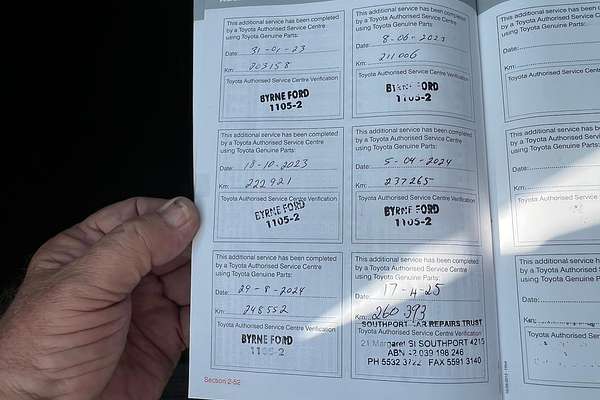 This additional service has been completed
by a Toyota Authorised Service Centre
using Toyota Genuine Parts:
Date: 31-01-23
Km: 203158
Toyota Authorised Service Centre Verification
BYRNE FORD
1105-2
This additional service has been completed
by a Toyota Authorised Service Centre
using Toyota Genuine Parts:
Date: 8-06-2023
Km: 211006
Toyota Authorised Service Centre Verification
FORD
1105-2
This additional service has
by a Toyota Authorised
using Toyota Genuine
Date:
Km:
Toyota Authorised Service
This additional service has been completed
by a Toyota Authorised Service Centre
using Toyota Genuine Parts:
Date: 18-10-2023
Km: 222921
Toyota Authorised Service Centre Verification
BYRNE FORD
1105-2
This additional service has been completed
by a Toyota Authorised Service Centre
using Toyota Genuine Parts:
Date: 5-04-2024
Km: 237265
Toyota Authorised Service Centre Verification
BYRNE FORD
1105-2
This additional service
by a Toyota Authorised
using Toyota Genuine
Date:
Km:
Toyota Authorised Service
This additional service has been completed
by a Toyota Authorised Service Centre
using Toyota Genuine Parts:
Date: 29-8-2024
Km: 248552
Toyota Authorised Service Centre Verification
BYRNE FORD
1105-2
This additional service has been completed
by a Toyota Authorised Service Centre
using Toyota Genuine Parts:
Date: 17-4-25
Km: 260 393
SOUTHPORT CAR REPAIRS TRUST
Toyota Authorised Service Centre Verification
21 Margaret St SOUTHPORT 4215
ABN 039 198 246
PH 5532 FAX 5591 3140
This additional service
by a Toyota Authorised
using Toyota Genuine
Date:
Km:
Toyota Authorised
Section 2-52